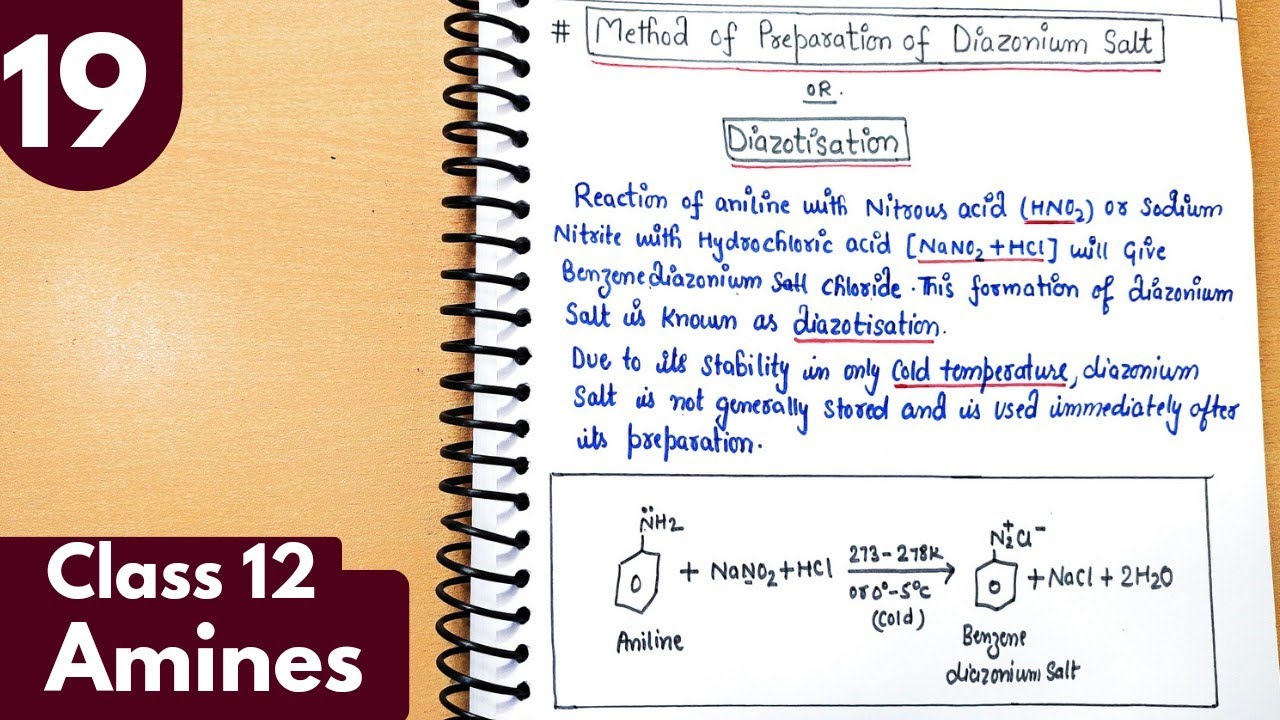 19
# Method of Preparation of Diazonium Salt
OR.
Diazotisation
Reaction of aniline with Nitrous acid (HNO2) or Sodium
Nitrite with Hydrochloric acid [NaNO2+HCl] will Give
Benzenediazonium Salt Chloride. This formation of diazonium
Salt is Known as diazotisation.
Due to its stability in only Cold temperature, diazonium
Salt is not generally stored and is used immediately after
its preparation.
N̈H2
+ NaNO2+HCl
273-278K
or 0°-5°C
(Cold)
N2+Cl-
+NaCl + 2H2O
Aniline
Benzene
diazonium Salt
Class 12
Amines